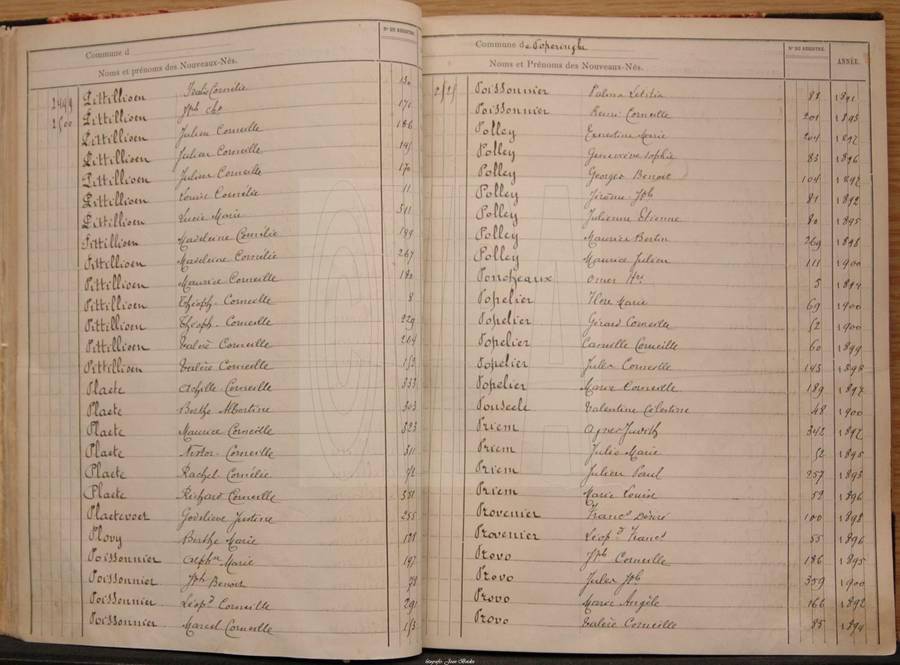 Commune d
N° DU REGISTRE.
Noms et prénoms des Nouveaux-Nés.
2499 Pittillioen Cornélie
2500 Pittillioen Jph
Pittillioen Julien Corneille 186
Pittillioen Julien Corneille
Pittillioen Julien Corneille 170
Pittillioen Louise Cornélie 11
Pittillioen Lucie Marie 311
Pittillioen Madeleine Cornélie 199
Pittillioen Madeleine Cornélie 267
Pittillioen Maurice Corneille 180
Pittillioen Théoph. Corneille 8
Pittillioen Théoph. Corneille 229
Pittillioen Valère Corneille 204
Pittillioen Valère Corneille 152
Plaete Achille Corneille 333
Plaete Berthe Albertine 303
Plaete Maurice Corneille 323
Plaete Nestor Corneille 311
Plaete Rachel Cornélie 72
Plaete Richard Corneille 351
Plaetevoet Godelieve Justine 255
Plovy Berthe Marie 178
Poissonnier Marie 197
Poissonnier Jph Benoit 78
Poissonnier Léopd Corneille 291
Poissonnier Marcel Corneille 153
Commune de Poperinghe
Noms et Prénoms des Nouveaux-Nés.
N° DU REGISTRE.
ANNÉE.
Poissonnier Palma Letitia 88 1891
Poissonnier Henri Corneille 201 1893
Polley Ernestine Marie 204 1892
Polley Geneviève Sophie 83 1896
Polley Georges Benoit 104 1892
Polley Jérôme Jph 81 1892
Polley Julienne Etienne 80 1895
Polley Maurice Bertin 269 1898
Polley Maurice Julien 111 1900
Omer Hri 5 1894
Popelier Flore Marie 69 1900
Popelier Gérard Corneille 52 1900
Popelier Camille Corneille 60 1899
Popelier Jules Corneille 143 1898
Popelier Marie Corneille 189 1897
Pouseele Valentine Célestine 48 1900
Priem Agnes Judith 342 1892
Priem Julie Marie 52 1895
Priem Julien Paul 257 1893
Priem Marie Louise 59 1896
Provenier Francs Désiré 100 1898
Provenier Léopd Francs 55 1896
Provo Jph Corneille 186 1895
Provo Jules Jph 359 1900
Provo Marie Angèle 166 1892
Provo Valère Corneille 85 1894